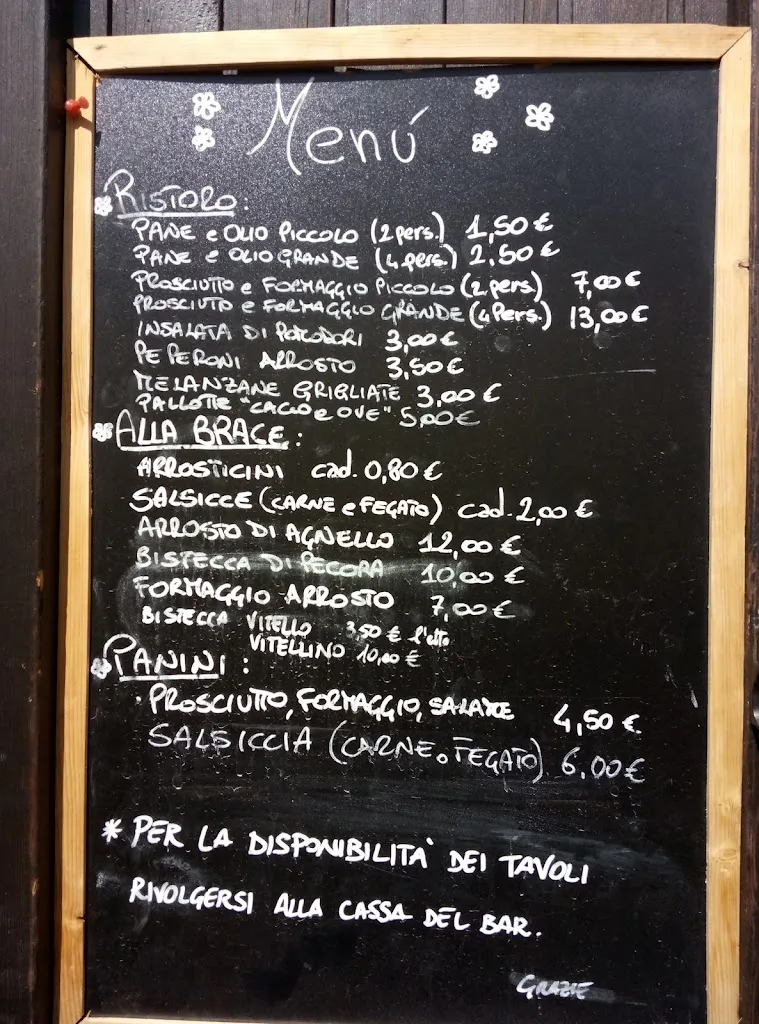 Menú
RISTORO:
PANE e OLIO PICCOLO (2 pers.) 1,50 €
PANE e OLIO GRANDE (4 pers.) 2,50 €
PROSCIUTTO e FORMAGGIO PICCOLO (2 pers) 7,00 €
PROSCIUTTO e FORMAGGIO GRANDE (4 Pers.) 13,00 €
INSALATA DI POMODORI 3,00 €
PEPERONI ARROSTO 3,50 €
MELANZANE GRIGLIATE 3,00 €
PALLOTTE "CACIO e OVE" 5,00 €
ALLA BRACE:
ARROSTICINI cad. 0,80 €
SALSICCE (CARNE e FEGATO) cad. 2,00 €
ARROSTO DI AGNELLO 12,00 €
BISTECCA DI PECORA 10,00 €
FORMAGGIO ARROSTO 7,00 €
BISTECCA VITELLO 3,50 € l'etto
VITELLINO 10,00 €
PANINI:
· PROSCIUTTO, FORMAGGIO, SALAME 4,50 €
SALSICCIA (CARNE o FEGATO) 6,00 €
* PER LA DISPONIBILITA' DEI TAVOLI
RIVOLGERSI ALLA CASSA DEL BAR.
GRAZIE